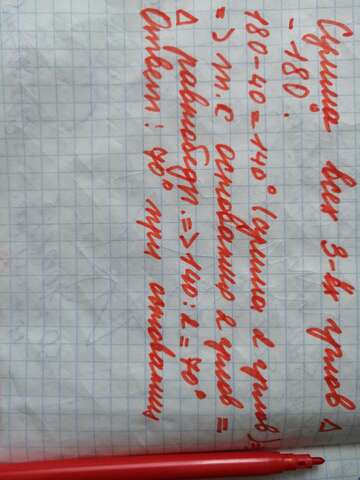 Сумма всех 3-ёх углов Δ
- 180°.
180-40=140° (сумма 2 углов).
=> т.с основанию 2 углов =
Δ равнобедр.=>140:2=70°
Ответ: 70° при основании